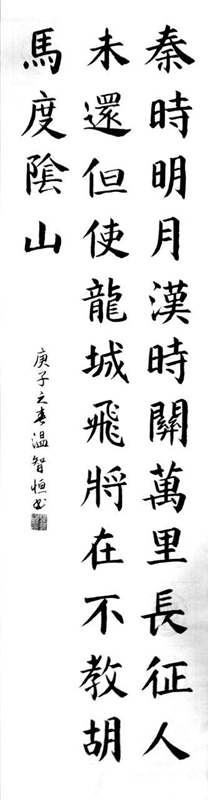 秦時明月漢時關萬里長征人
未還但使龍城飛將在不教胡
馬度陰山
庚子之春温智恒书